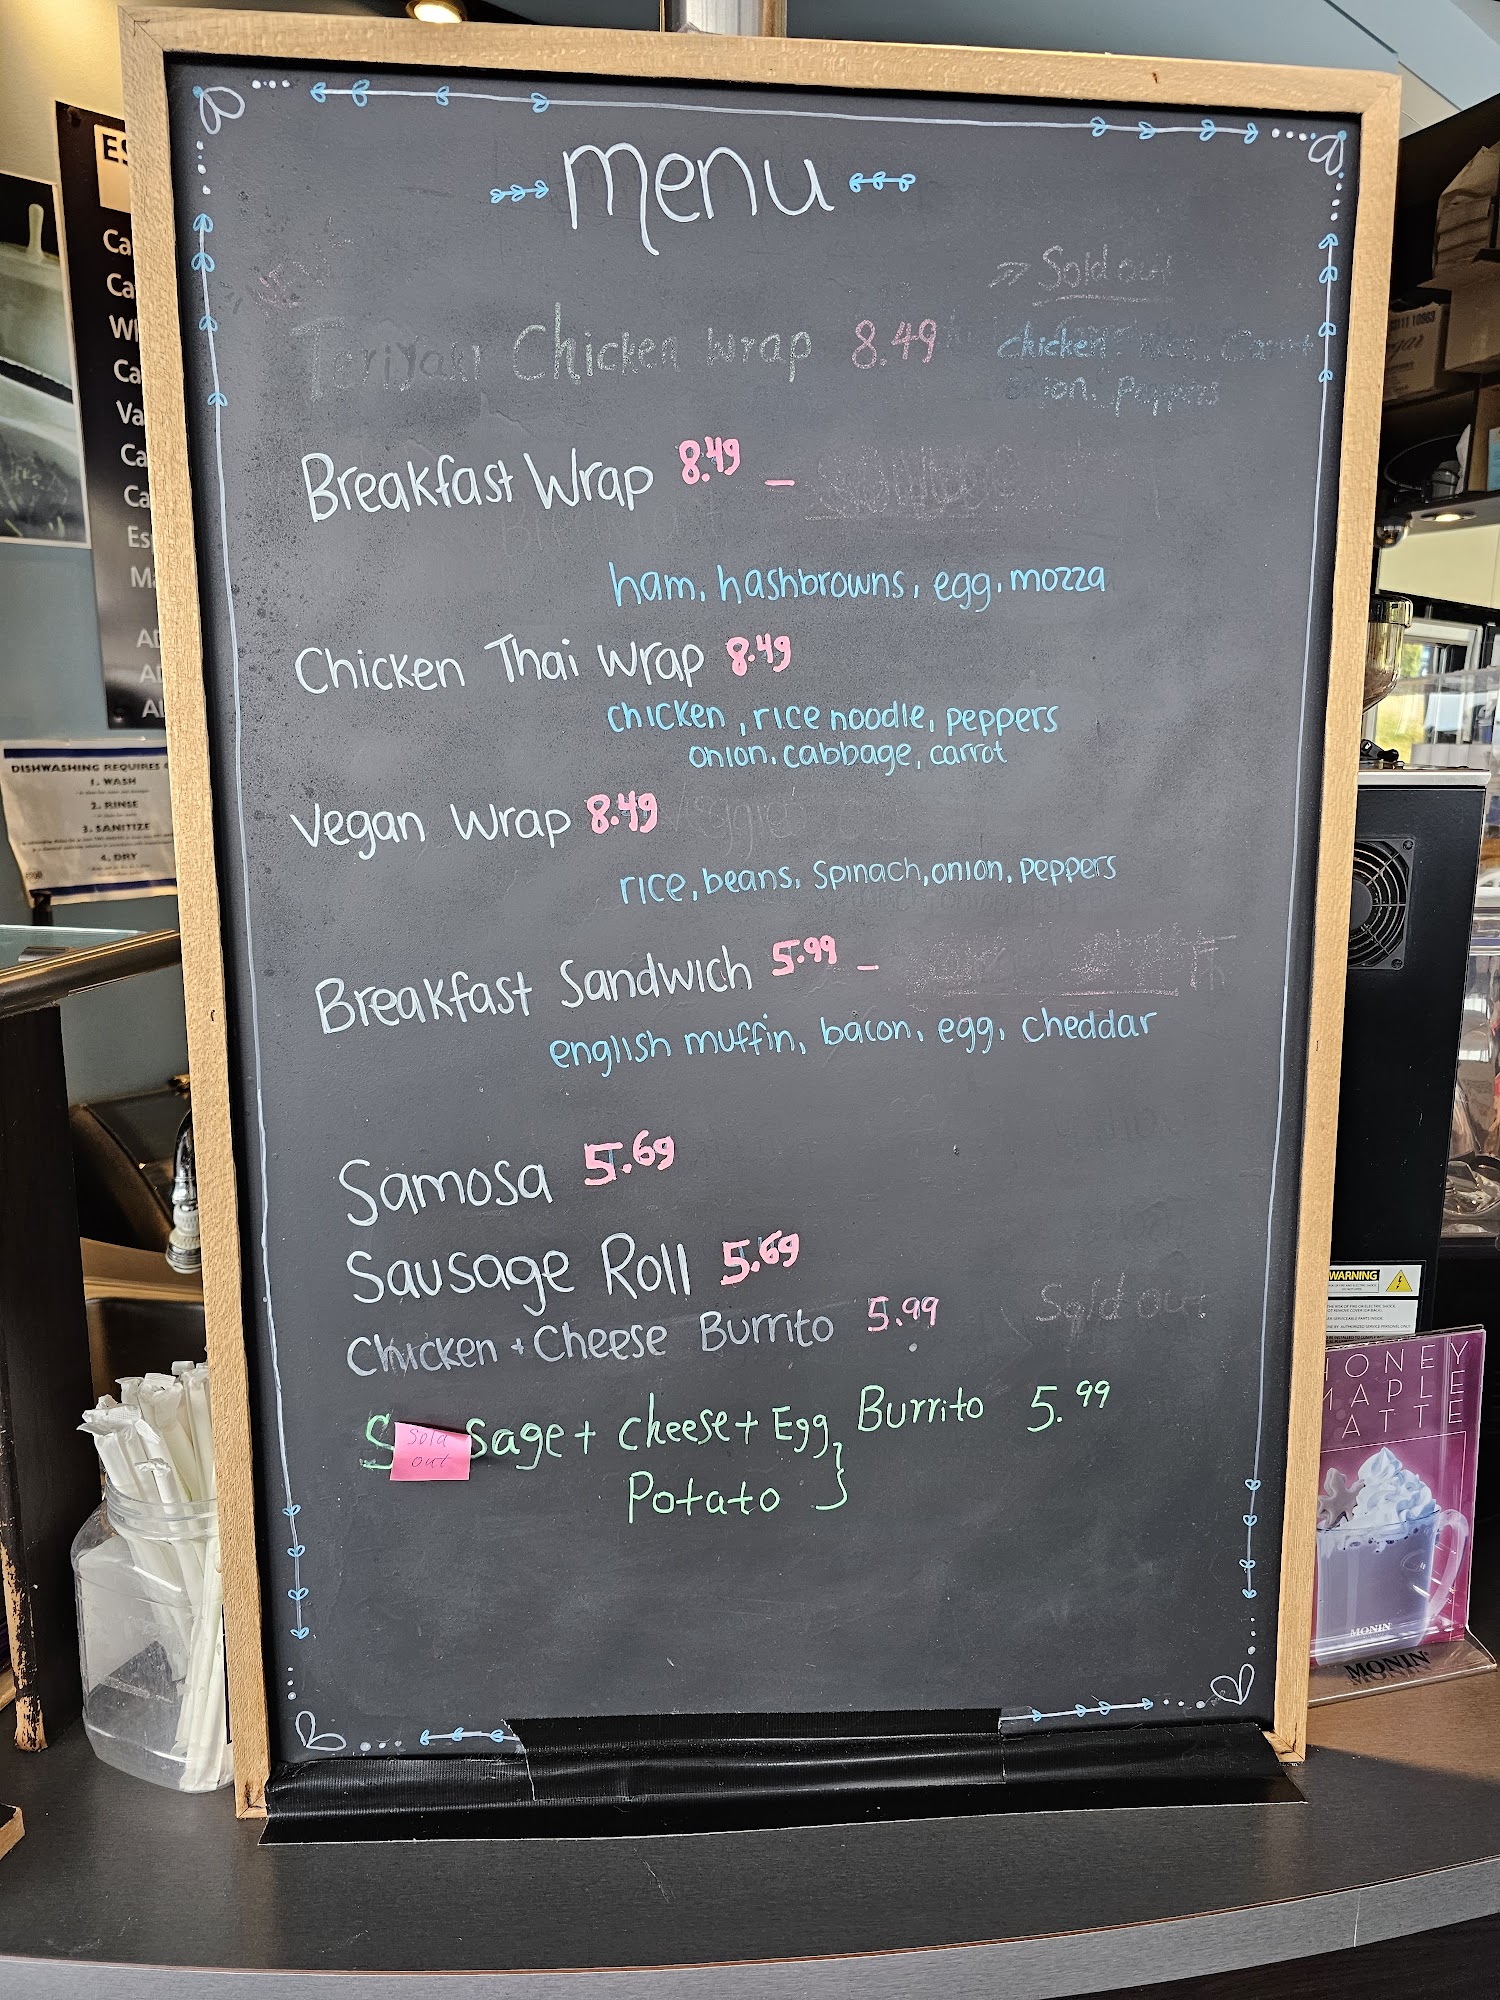 menu
Sold out
Teriyaki Chicken Wrap 8.49 chicken, rice, carrot
onion, peppers
Breakfast Wrap 8.49 –
ham, hashbrowns, egg, mozza
Chicken Thai Wrap 8.49
chicken, rice noodle, peppers
onion, cabbage, carrot
Vegan Wrap 8.49
rice, beans, spinach, onion, peppers
Breakfast Sandwich 5.99 –
english muffin, bacon, egg, cheddar
Samosa 5.69
Sausage Roll 5.69
Chicken + Cheese Burrito 5.99 Sold out
S sage + cheese + Egg, Burrito 5.99
Sold
out
Potato
DISHWASHING REQUIRES
1. WASH
2. RINSE
3. SANITIZE
4. DRY
WARNING
HONEY
MAPLE
LATTE
MONIN
MONIN